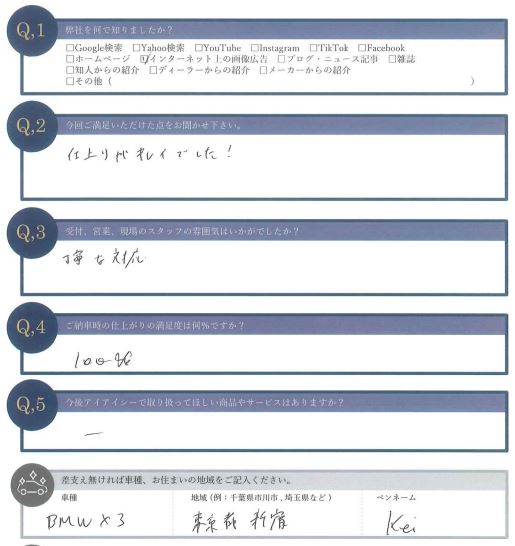 Q,1 弊社を何で知りましたか？
□Google検索 □Yahoo検索 □YouTube □Instagram □TikTok □Facebook
□ホームページ ☑インターネット上の画像広告 □ブログ・ニュース記事 □雑誌
□知人からの紹介 □ディーラーからの紹介 □メーカーからの紹介
□その他（ ）
Q,2 今回ご満足いただけた点をお聞かせ下さい。
仕上りがキレイでした！
Q,3 受付、営業、現場のスタッフの雰囲気はいかがでしたか？
丁寧な対応
Q,4 ご納車時の仕上がりの満足度は何%ですか？
100%
Q,5 今後アイアイシーで取り扱ってほしい商品やサービスはありますか？
ー
差支え無ければ車種、お住まいの地域をご記入ください。
車種 地域（例：千葉県市川市、埼玉県など） ペンネーム
BMW X3 東京都 新宿 Kei